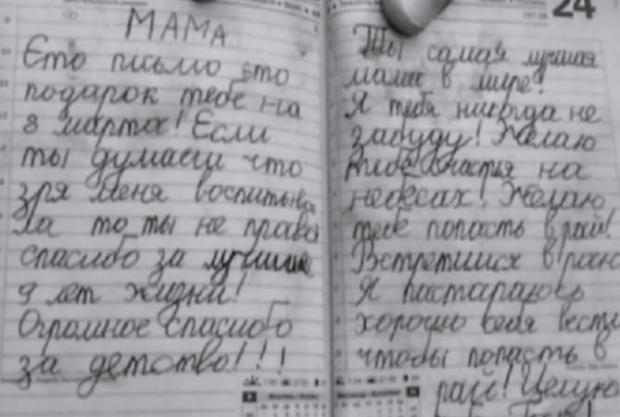 МАМА
Єто письмо єто
подарок тебе на
8 марта! Если
ты думаеш что
зря меня воспитыва
ла то ты не права
спасибо за лучшие
9 лет жизни!
Огромное спасибо
за детство!!!
24
Ты самая лучшая
мама в мире!
Я тебя никогда не
забуду! Желаю
тебе счастья на
небесах! Желаю
тебе попасть в рай!
Встретимся в раю
Я постараюсь
хорошо себя вести
чтобы попасть в
рай! Целую